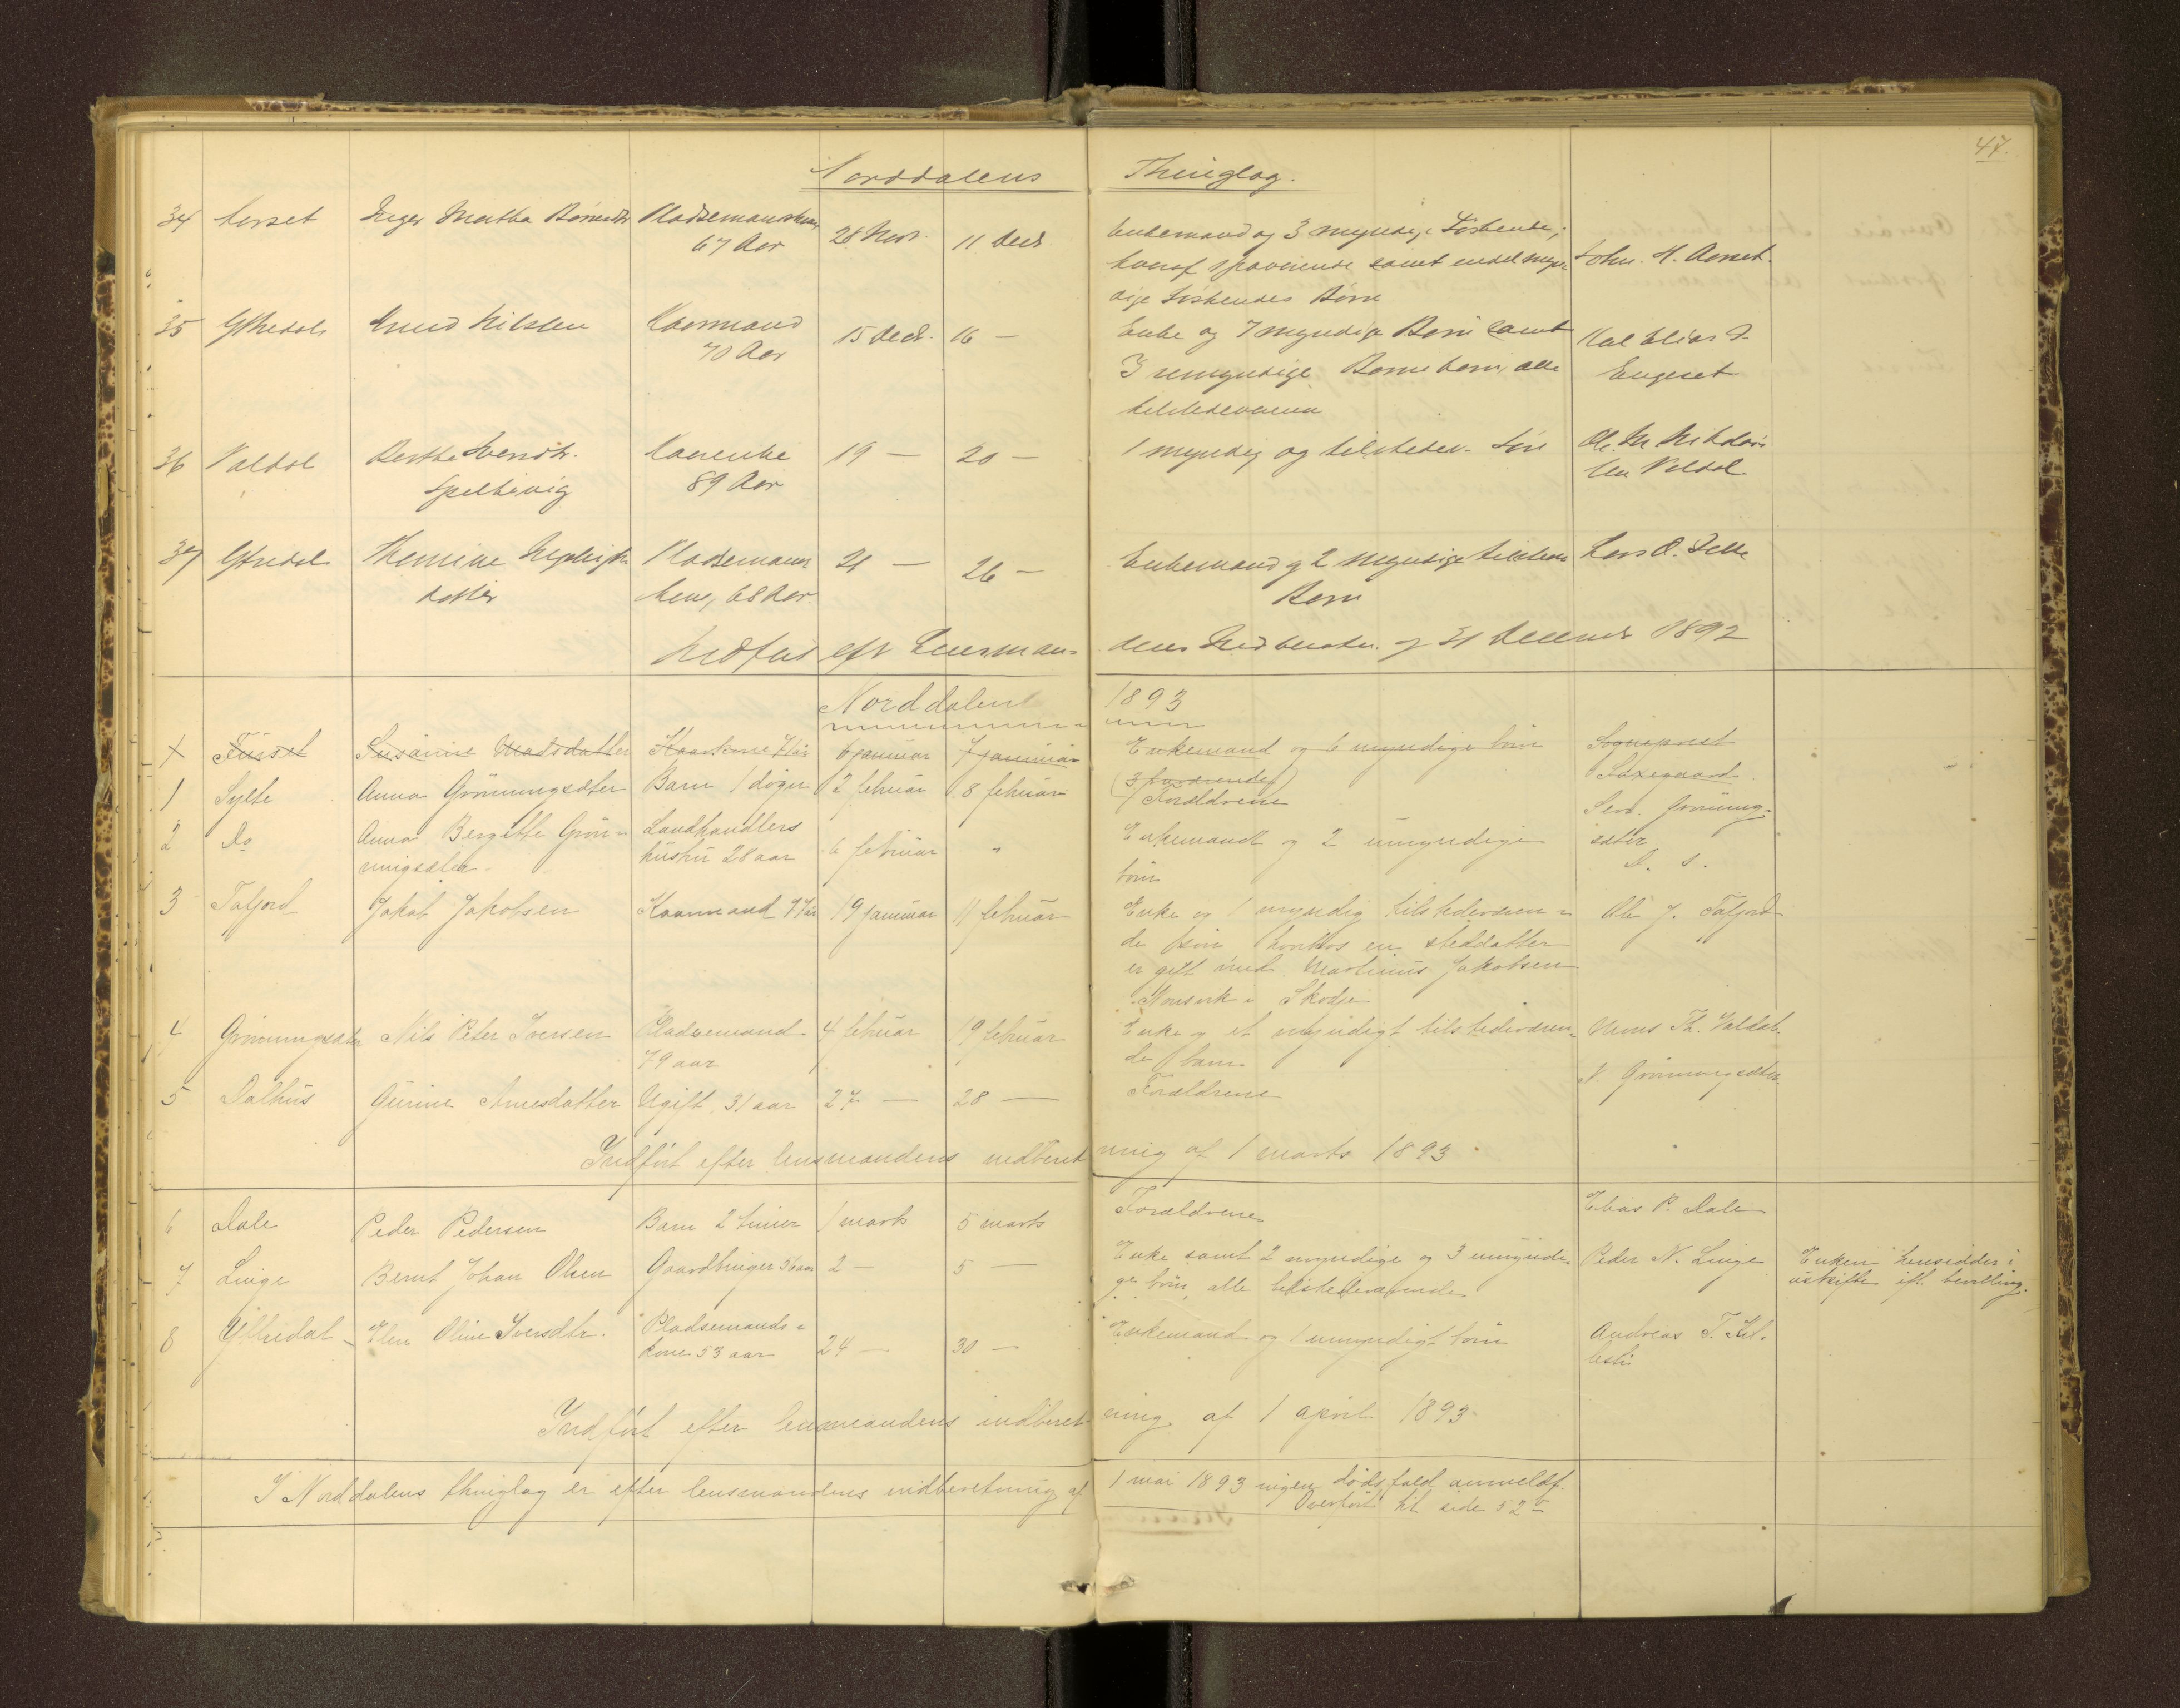 47.
Norddalens Thinglag.
34 Aarset Inger Martha Pladsemandskone 28 Novr. 11 Decb. Enkemand og 3 myndige Søskende,
67 Aar hvoraf samt endel myn- John. H. Aarset.
dige Søskendes Børn
35 Yttredal Knud Nilsen Kaarmand 15 Decb. 16 — Enke og 7 myndige Børn samt Karl Elias
70 Aar 3 umyndige Børnebørn, alle Engeset
tilstedeværen
36 Valdal Berthe Iversdtr. Kaarenke 19 — 20 — 1 myndig og tilstedev. Søn Ole M.
Speltvig 89 Aar Valdal
37 Yttredal Pladsemands 21 — 26 — Enkemand og 2 myndige tilstedev. Lars O.
datter kone, 68 Aar Børn
Indført eft Lensmandens Indberetn. af 31 Decemb 1892
Norddalens 1893
X Susanne Madsdatter Kaarkone 6 januar 7 januar Enkemand og 6 myndige børn Sogneprest
(3 fraværende)
1 Sylte Anna Grönningsæter Barn 1 døgn 2 februar 8 februar Forældrene
2 Do Anna Bergitte Grön- Landhandlers 6 februar " Enkemand og 2 umyndige sæter
ningsæter hustru 28 aar børn D. S.
3 Tafjord Jakob Jakobsen Kaarmand 19 januar 11 februar Enke og 1 myndig tilstedeværen- Ole J. Tafjord
de søn hvorhos en steddatter
er gift med Martinus Jakobsen
i Skodje
4 Grönningsæter Nils Peter Iversen Pladsemand 4 februar 19 februar Enke og et myndigt tilstedeværen- Th. Valdal
79 aar de barn
5 Dalhus Gurine Arnesdatter Ugift 31 aar 27 — 28 — Forældrene N. Grönningsæter
Indført efter lensmandens indberetning af 1 marts 1893
6 Dale Peder Pedersen Barn 2 timer 1 marts 5 marts Forældrene Elias P. Dale
7 Linge Bernt Johan Olsen Gaardbruger 56 aar 2 — 5 — Enke samt 2 myndige og 3 umyndi- Peder N. Linge Enken hensidder i
ge børn, alle tilstedeværende uskifte eft. bevilling.
8 Yttredal Elen Oline Iversdtr. Pladsemands- 24 — 30 — Enkemand og 1 umyndigt børn Andreas T.
kone 53 aar
Indført efter lensmandens indberetning af 1 april 1893
I Norddalens thinglag er efter lensmandens indberetning af 1 mai 1893 ingen dødsfald anmeldt.
Overført til side 52